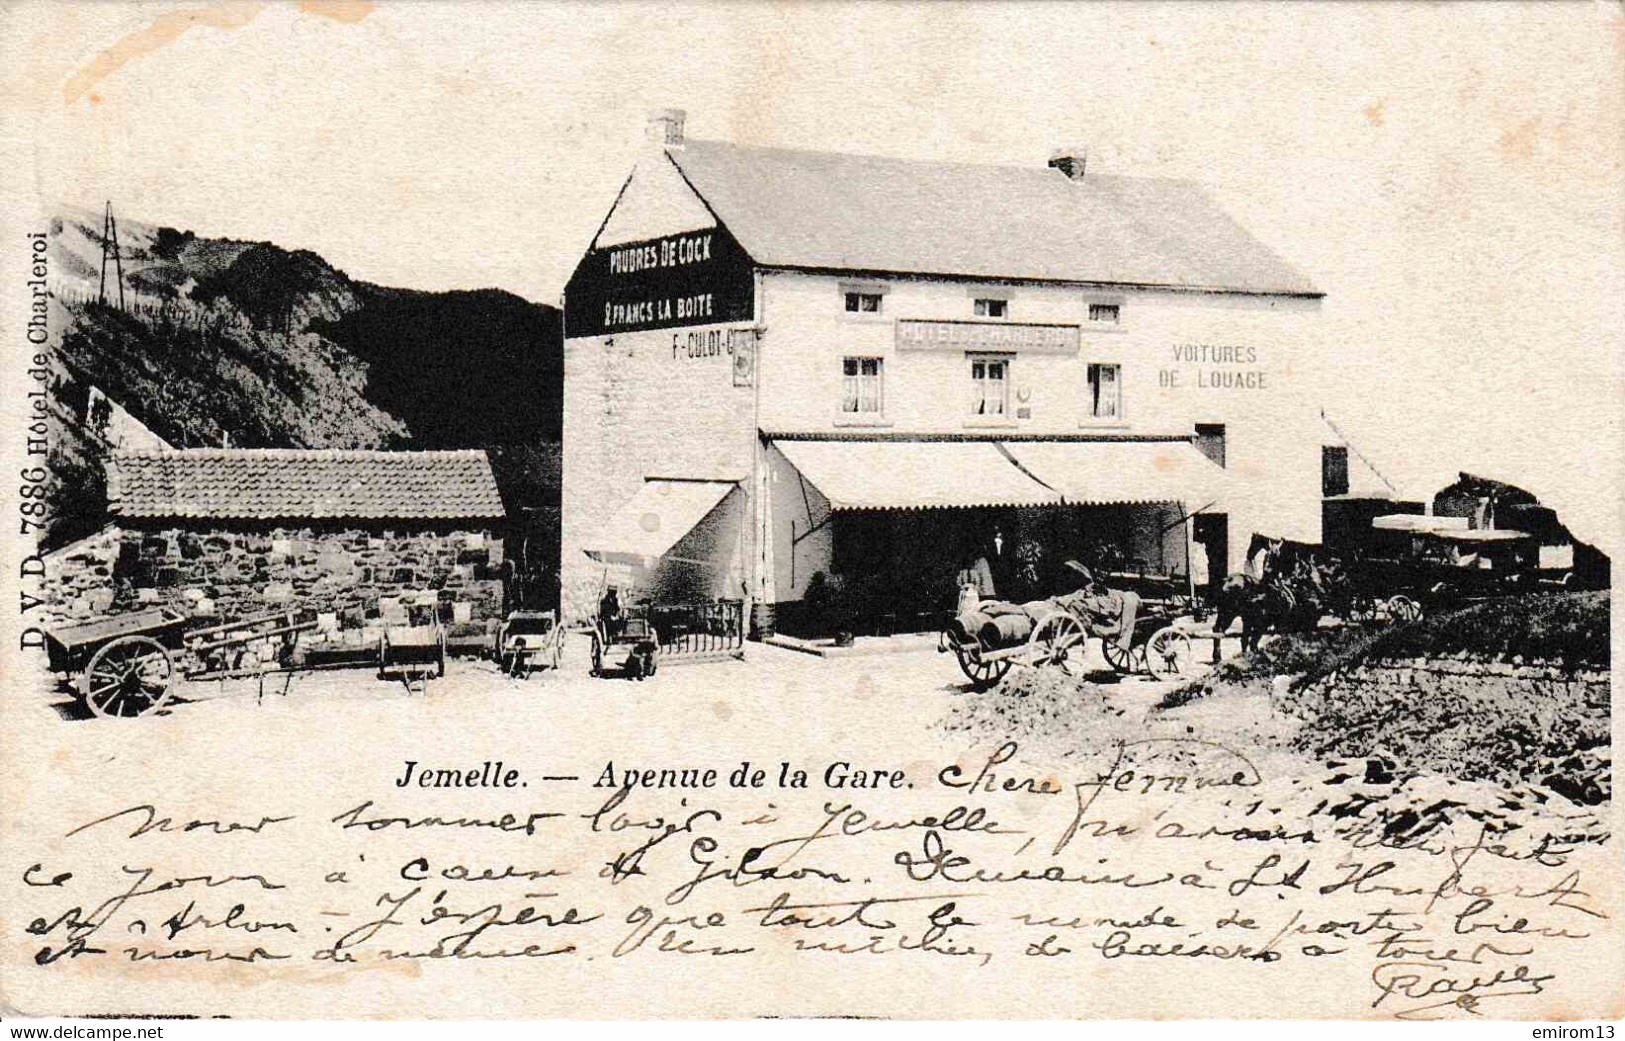 POUDRES DE COCK
2 FRANCS LA BOITE
F. CULOT-C
HOTEL DE CHARLEROI
VOITURES
DE LOUAGE
D.V.D. 7886 Hôtel de Charleroi
Jemelle. — Avenue de la Gare.
Chere femme
Nous sommes logés à Jemelle, n'avons rien fait
ce jour à cause de Gilson. Demain à St Hubert
et Arlon - J'espère que tout le monde se porte bien
et nous de même. Un million de baisers à tous
emirom13